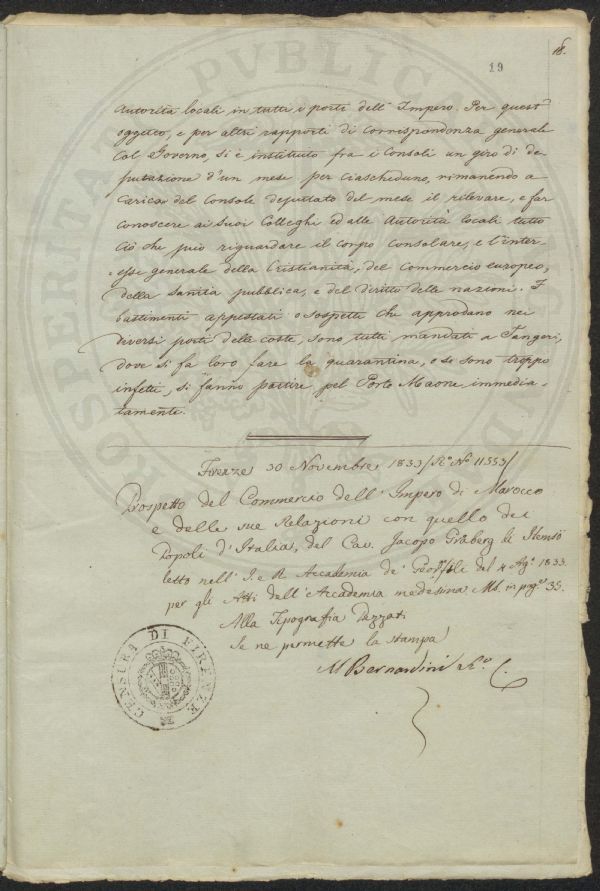 18.
19
Autorità locali in tutti i porti dell' Impero. Per quest'
oggetto, e per altri rapporti di corrispondenza generale
col Governo, si è instituto fra i Consoli un giro di de
putazione d'un mese per ciascheduno, rimanendo a
carico del Console deputato del mese il rilevare, e far
conoscere ai suoi Colleghi ed alle Autorità locali tutto
ciò che può riguardare il corpo Consolare, e l'inter-
esse generale della Cristianità, del Commercio europeo,
della sanità pubblica, e del diritto delle nazioni. I
bastimenti appestati o sospetti che approdano nei
diversi porti delle coste, sono tutti mandati a Tangeri,
dove si fa loro fare la quarantina, e se sono troppo
infetti, si fanno partire pel Porto Maone immedia-
tamente.
Firenze 30 Novembre 1833 / R.º Nº 11553/
Prospetto del Commercio dell' Impero di Marocco
e delle sue Relazioni con quello dei
Popoli d'Italia, del Cav. Jacopo Gråberg di Hemsö
letto nell' I. e R. Accademia de' Georgofili del 4 Agº 1833.
per gli Atti dell' Accademia medesima Ms. in pagº 35.
Alla Tipografia Pezzati
Se ne permette la stampa
M Bernardini
CENSURA DI FIRENZE
PVBLICA